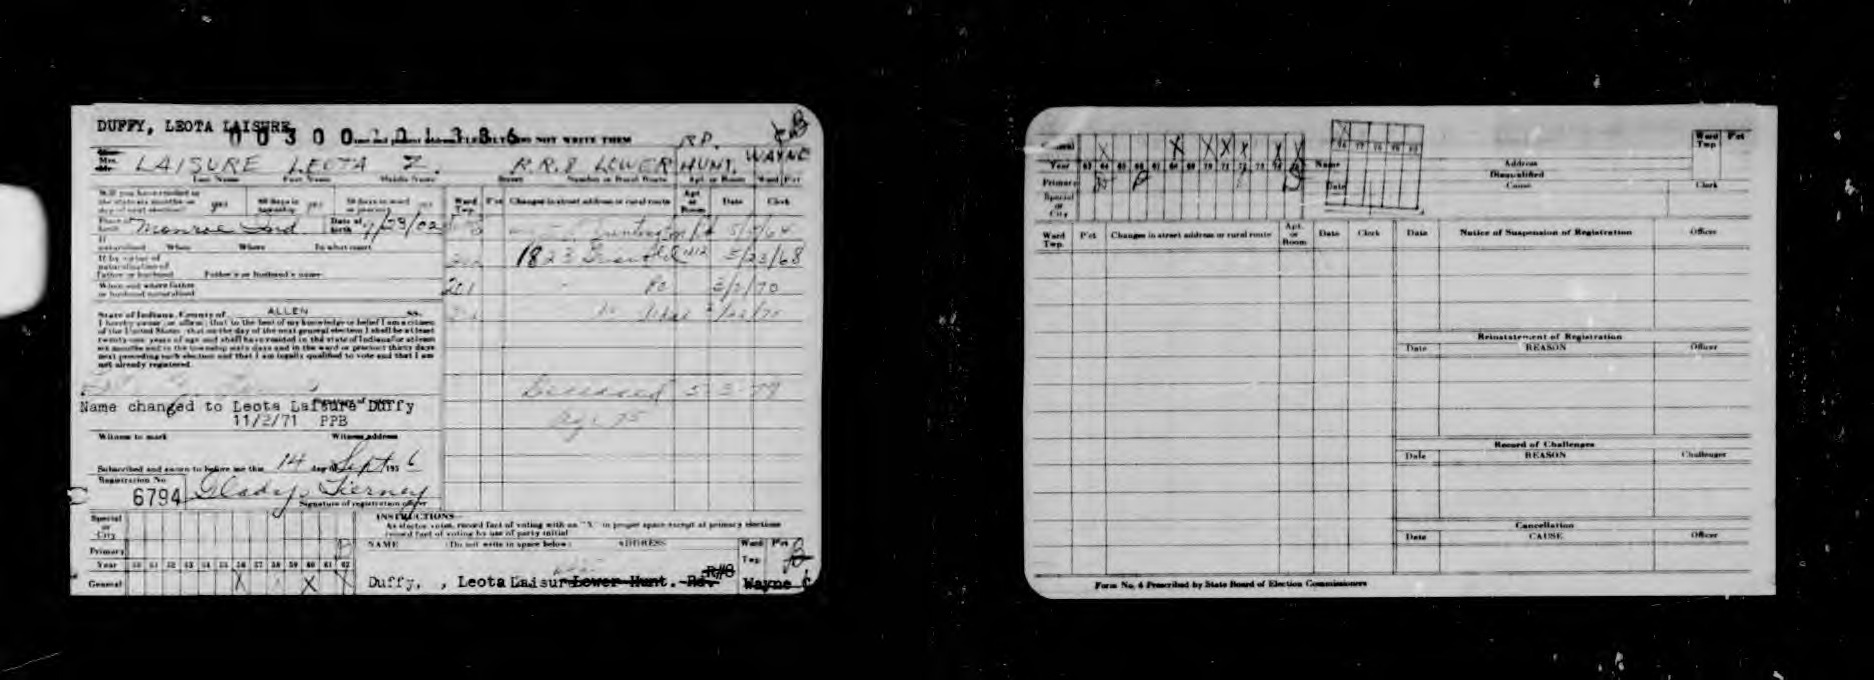 DUFFY, LEOTA LAISURE
00300101386 DO NOT WRITE THEM R.P.
Mrs. LAISURE LEOTA Z. R.R.8 LOWER HUNT. WAYNE
Last Name First Name Middle Name Street Number or Rural Route Apt. or Room Ward Pct
Will you have resided in the state six months on day of next election? yes 60 days in township yes 30 days in ward or precinct yes
Ward Twp. Pct Changes in street address or rural route Apt. or Room Date Clerk
Place of birth Monroe Ind Date of birth 9/23/02
Huntington Rd 5/5/64
If naturalized When Where In what court
1823 5/23/68
If by virtue of naturalization of father or husband Father's or husband's name
When and where father or husband naturalized
201 3/2/70
State of Indiana, County of ALLEN ss.
I hereby swear (or affirm) that to the best of my knowledge or belief I am a citizen
of the United States; that on the day of the next general election I shall be at least
twenty-one years of age and shall have resided in the state of Indiana for at least
six months and in the township sixty days and in the ward or precinct thirty days
next preceding such election and that I am legally qualified to vote and that I am
not already registered.
Deceased 5-3-79
age 75
Name changed to Leota Laisure Duffy
11/2/71 PPB
Witness to mark Witness address
Subscribed and sworn to before me this 14 day of Sept 1956
Registration No
6794 Gladys Tierney
Signature of registration officer
INSTRUCTIONS
As elector votes, record fact of voting with an "X" in proper space except at primary elections
record fact of voting by use of party initial
Special or City
Primary
Year 50 51 52 53 54 55 56 57 58 59 60 61 62
General X X X
NAME (Do not write in space below) ADDRESS Ward Twp. Pct
R#8
Duffy, , Leota Laisur Lower Hunt. Rd. Wayne C
General X X X X X
Year 63 64 65 66 67 68 69 70 71 72 73 74 75
76 77 78 79 80
Primary
Special or City
Name Address Ward Twp Pct
Disqualified
Date Cause Clerk
Ward Twp. P'ct Changes in street address or rural route Apt. or Room Date Clerk
Date Notice of Suspension of Registration Officer
Reinstatement of Registration
Date REASON Officer
Record of Challenges
Date REASON Challenger
Cancellation
Date CAUSE Officer
Form No. 4 Prescribed by State Board of Election Commissioners